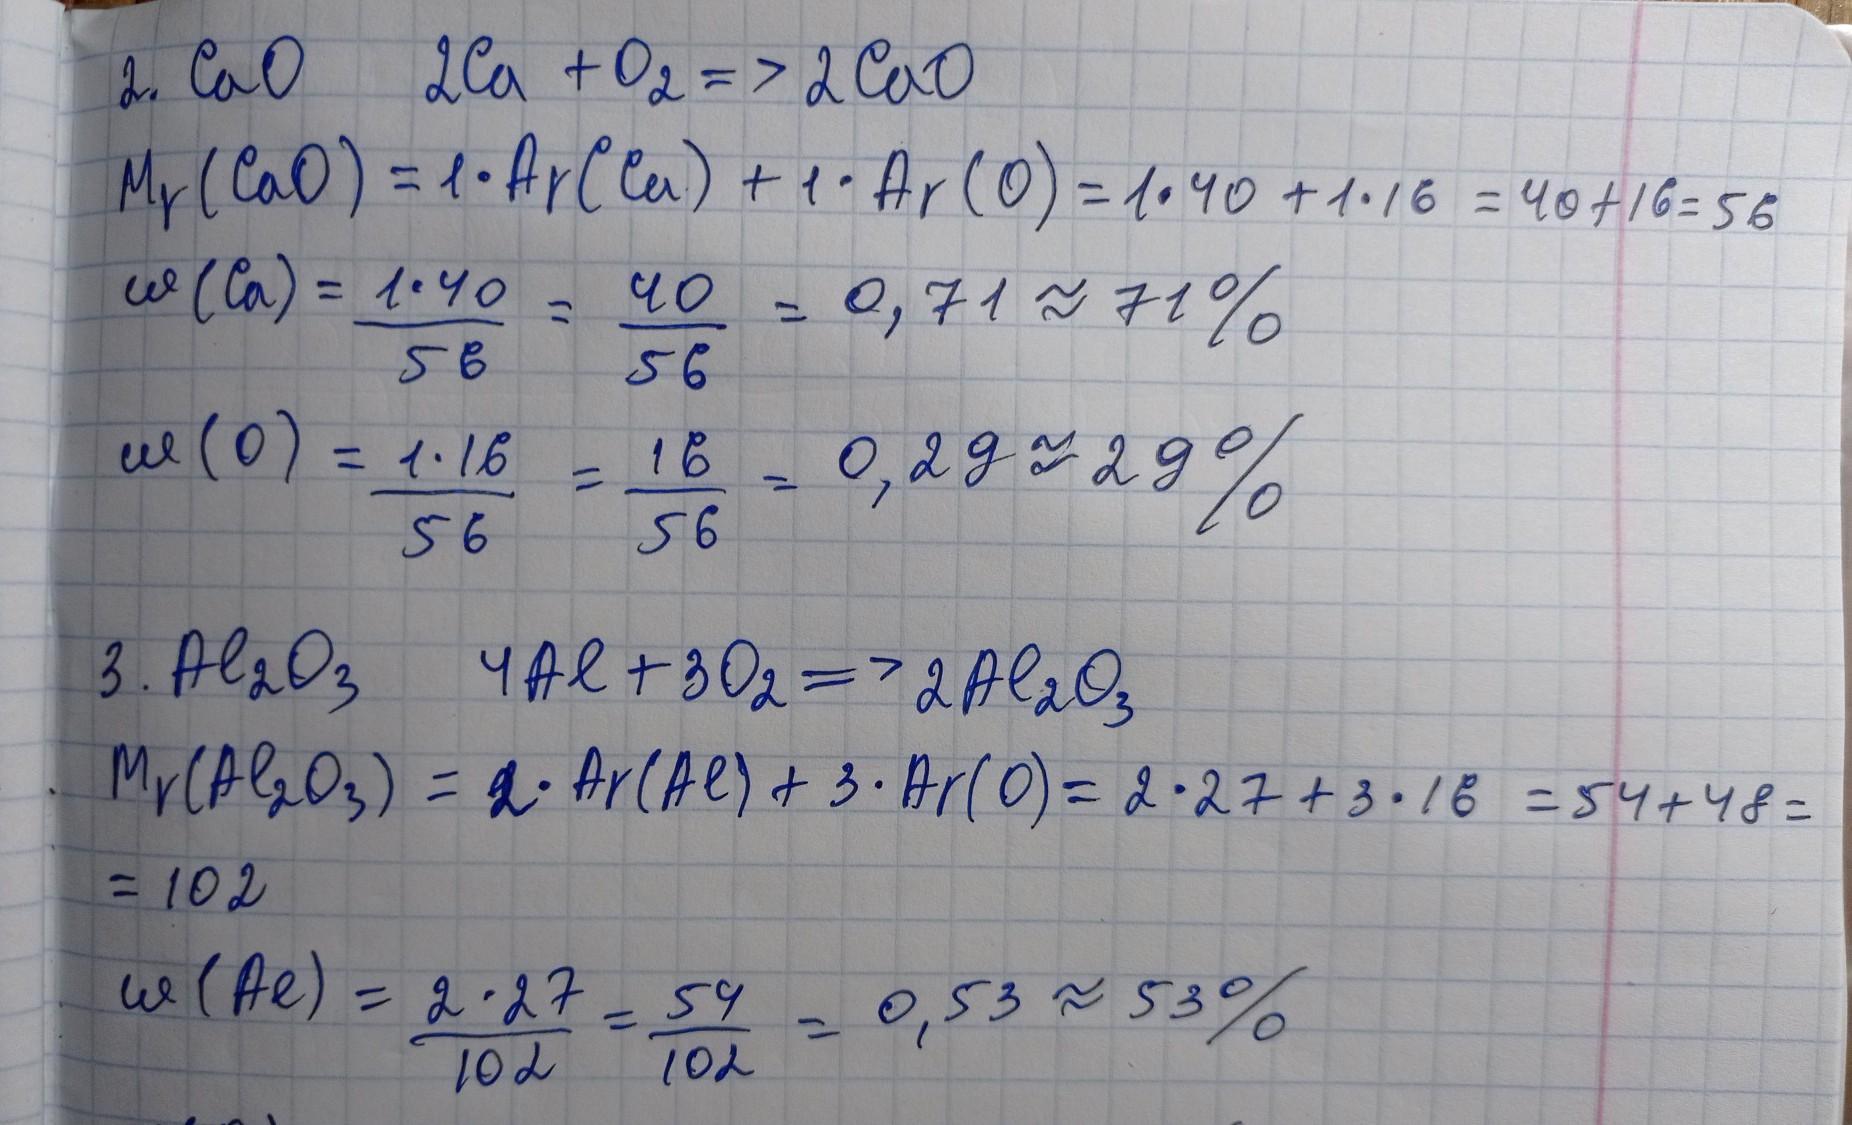 2. CaO 2Ca + O₂ => 2CaO
Mr(CaO) = 1·Ar(Ca) + 1·Ar(O) = 1·40 + 1·16 = 40+16=56
ω(Ca) = 1·40/56 = 40/56 = 0,71 ≈ 71%
ω(O) = 1·16/56 = 16/56 = 0,29 ≈ 29%
3. Al₂O₃ 4Al + 3O₂ => 2Al₂O₃
Mr(Al₂O₃) = 2·Ar(Al) + 3·Ar(O) = 2·27 + 3·16 = 54+48=
= 102
ω(Al) = 2·27/102 = 54/102 = 0,53 ≈ 53%